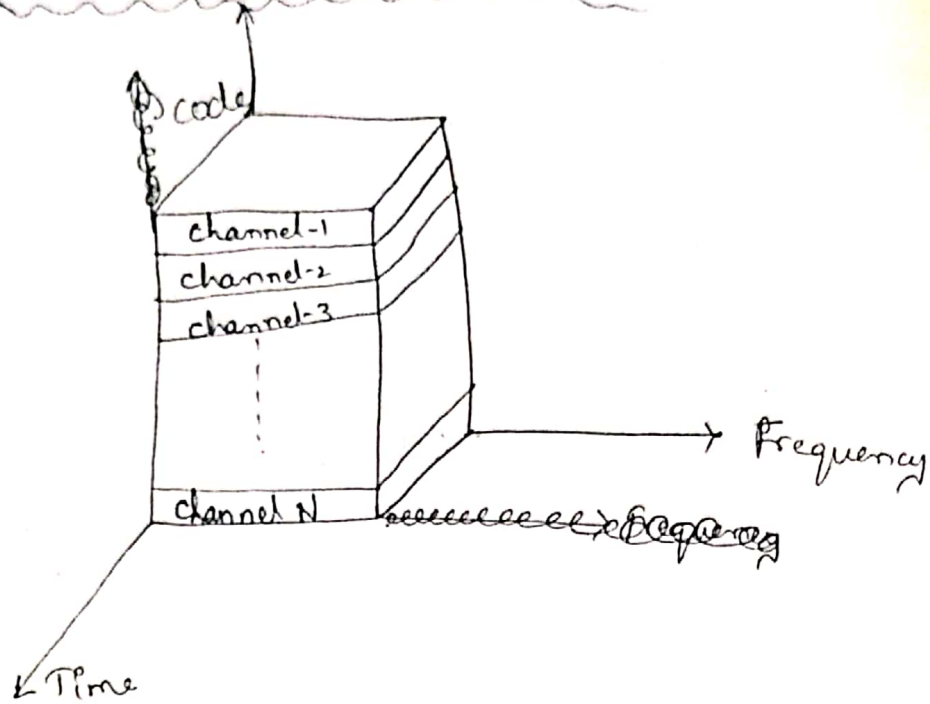 code
channel-1
channel-2
channel-3
channel N
Frequency
Time